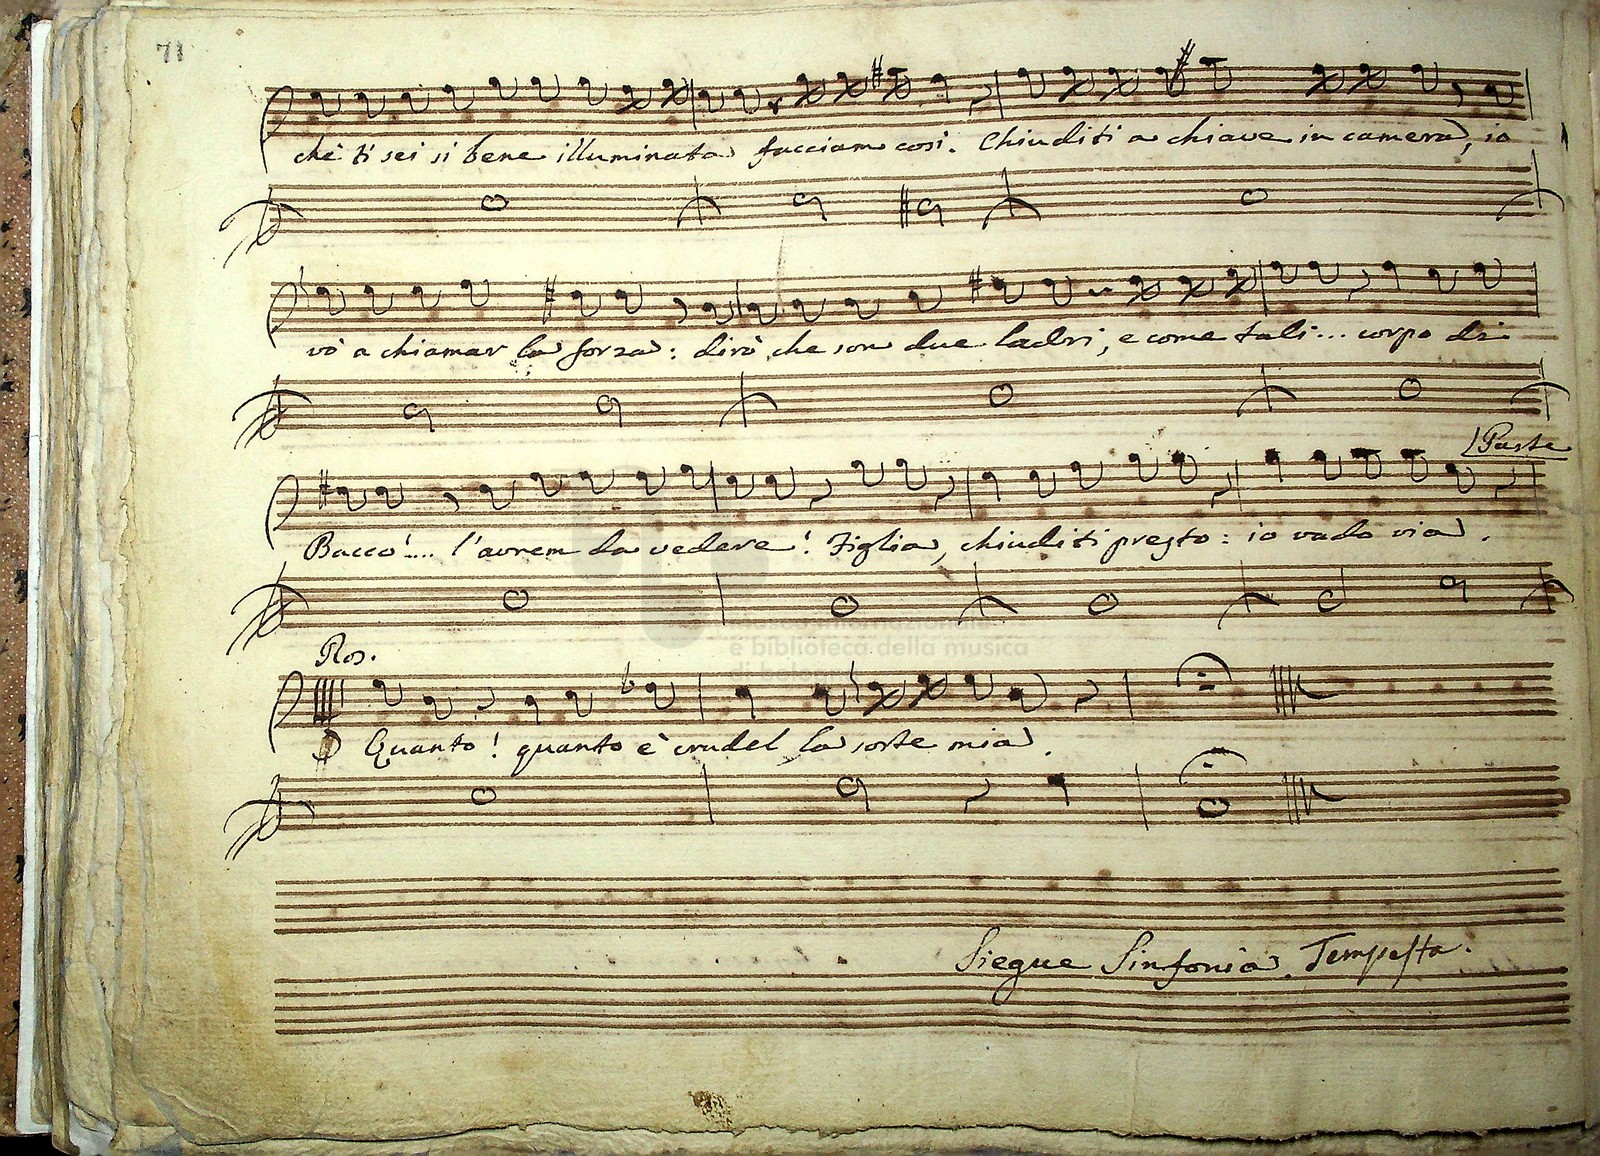 71
chè ti sei si bene illuminata facciam così. Chiuditi a chiave in camera, io
vò a chiamar la forza: dirò, che son due ladri, e come tali... corpo di
(Parte
Bacco!... l'avrem da vedere! Figlia, chiuditi presto: io vado via.
museo internazionale
e biblioteca della musica
di bologna
Ros.
Quanto! quanto è crudel la sorte mia.
Siegue Sinfonia. Tempesta.